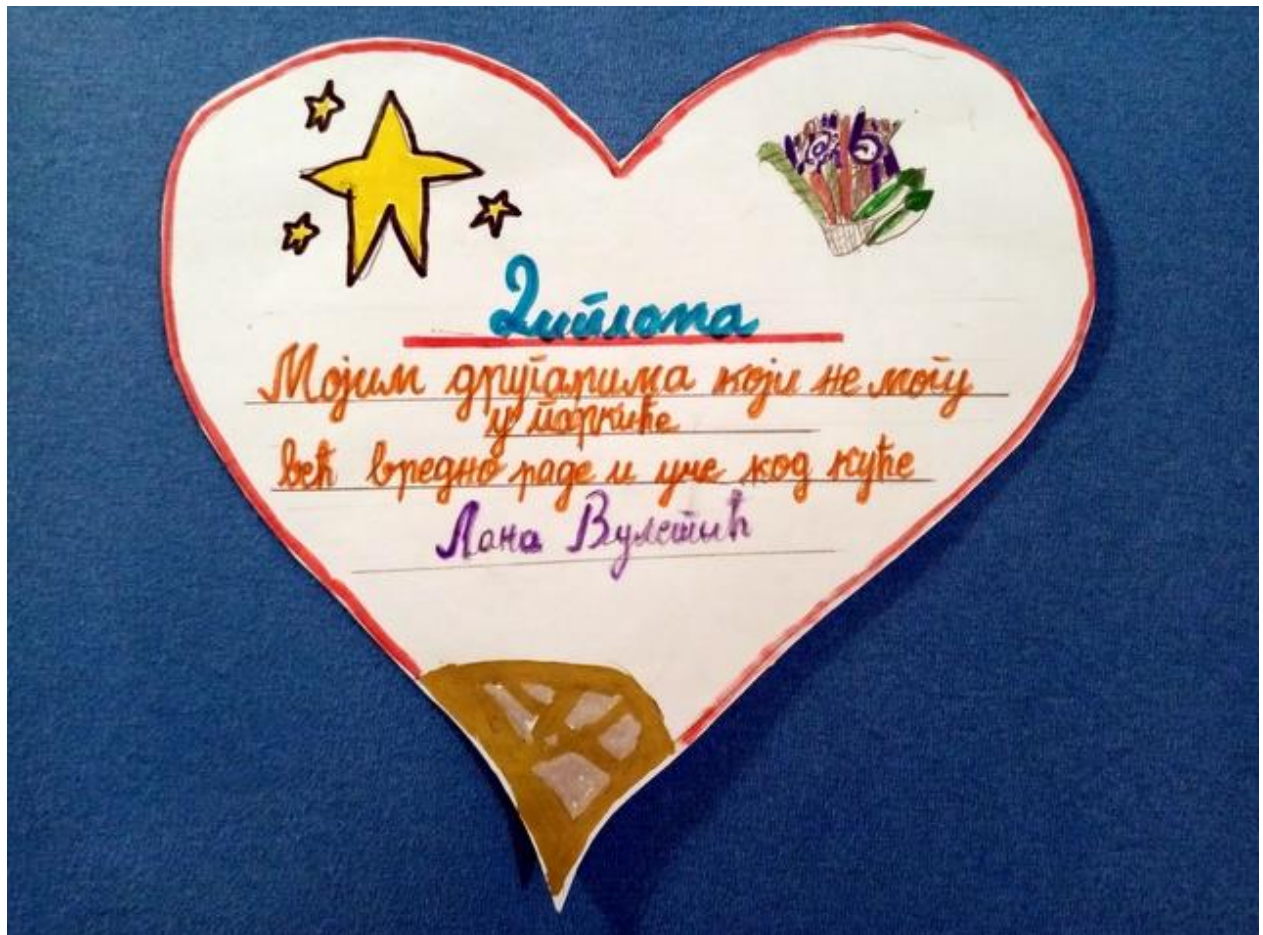 Диплома
Мојим другарима који не могу
у паркиће
већ вредно раде и уче код куће
Лана Вулетић